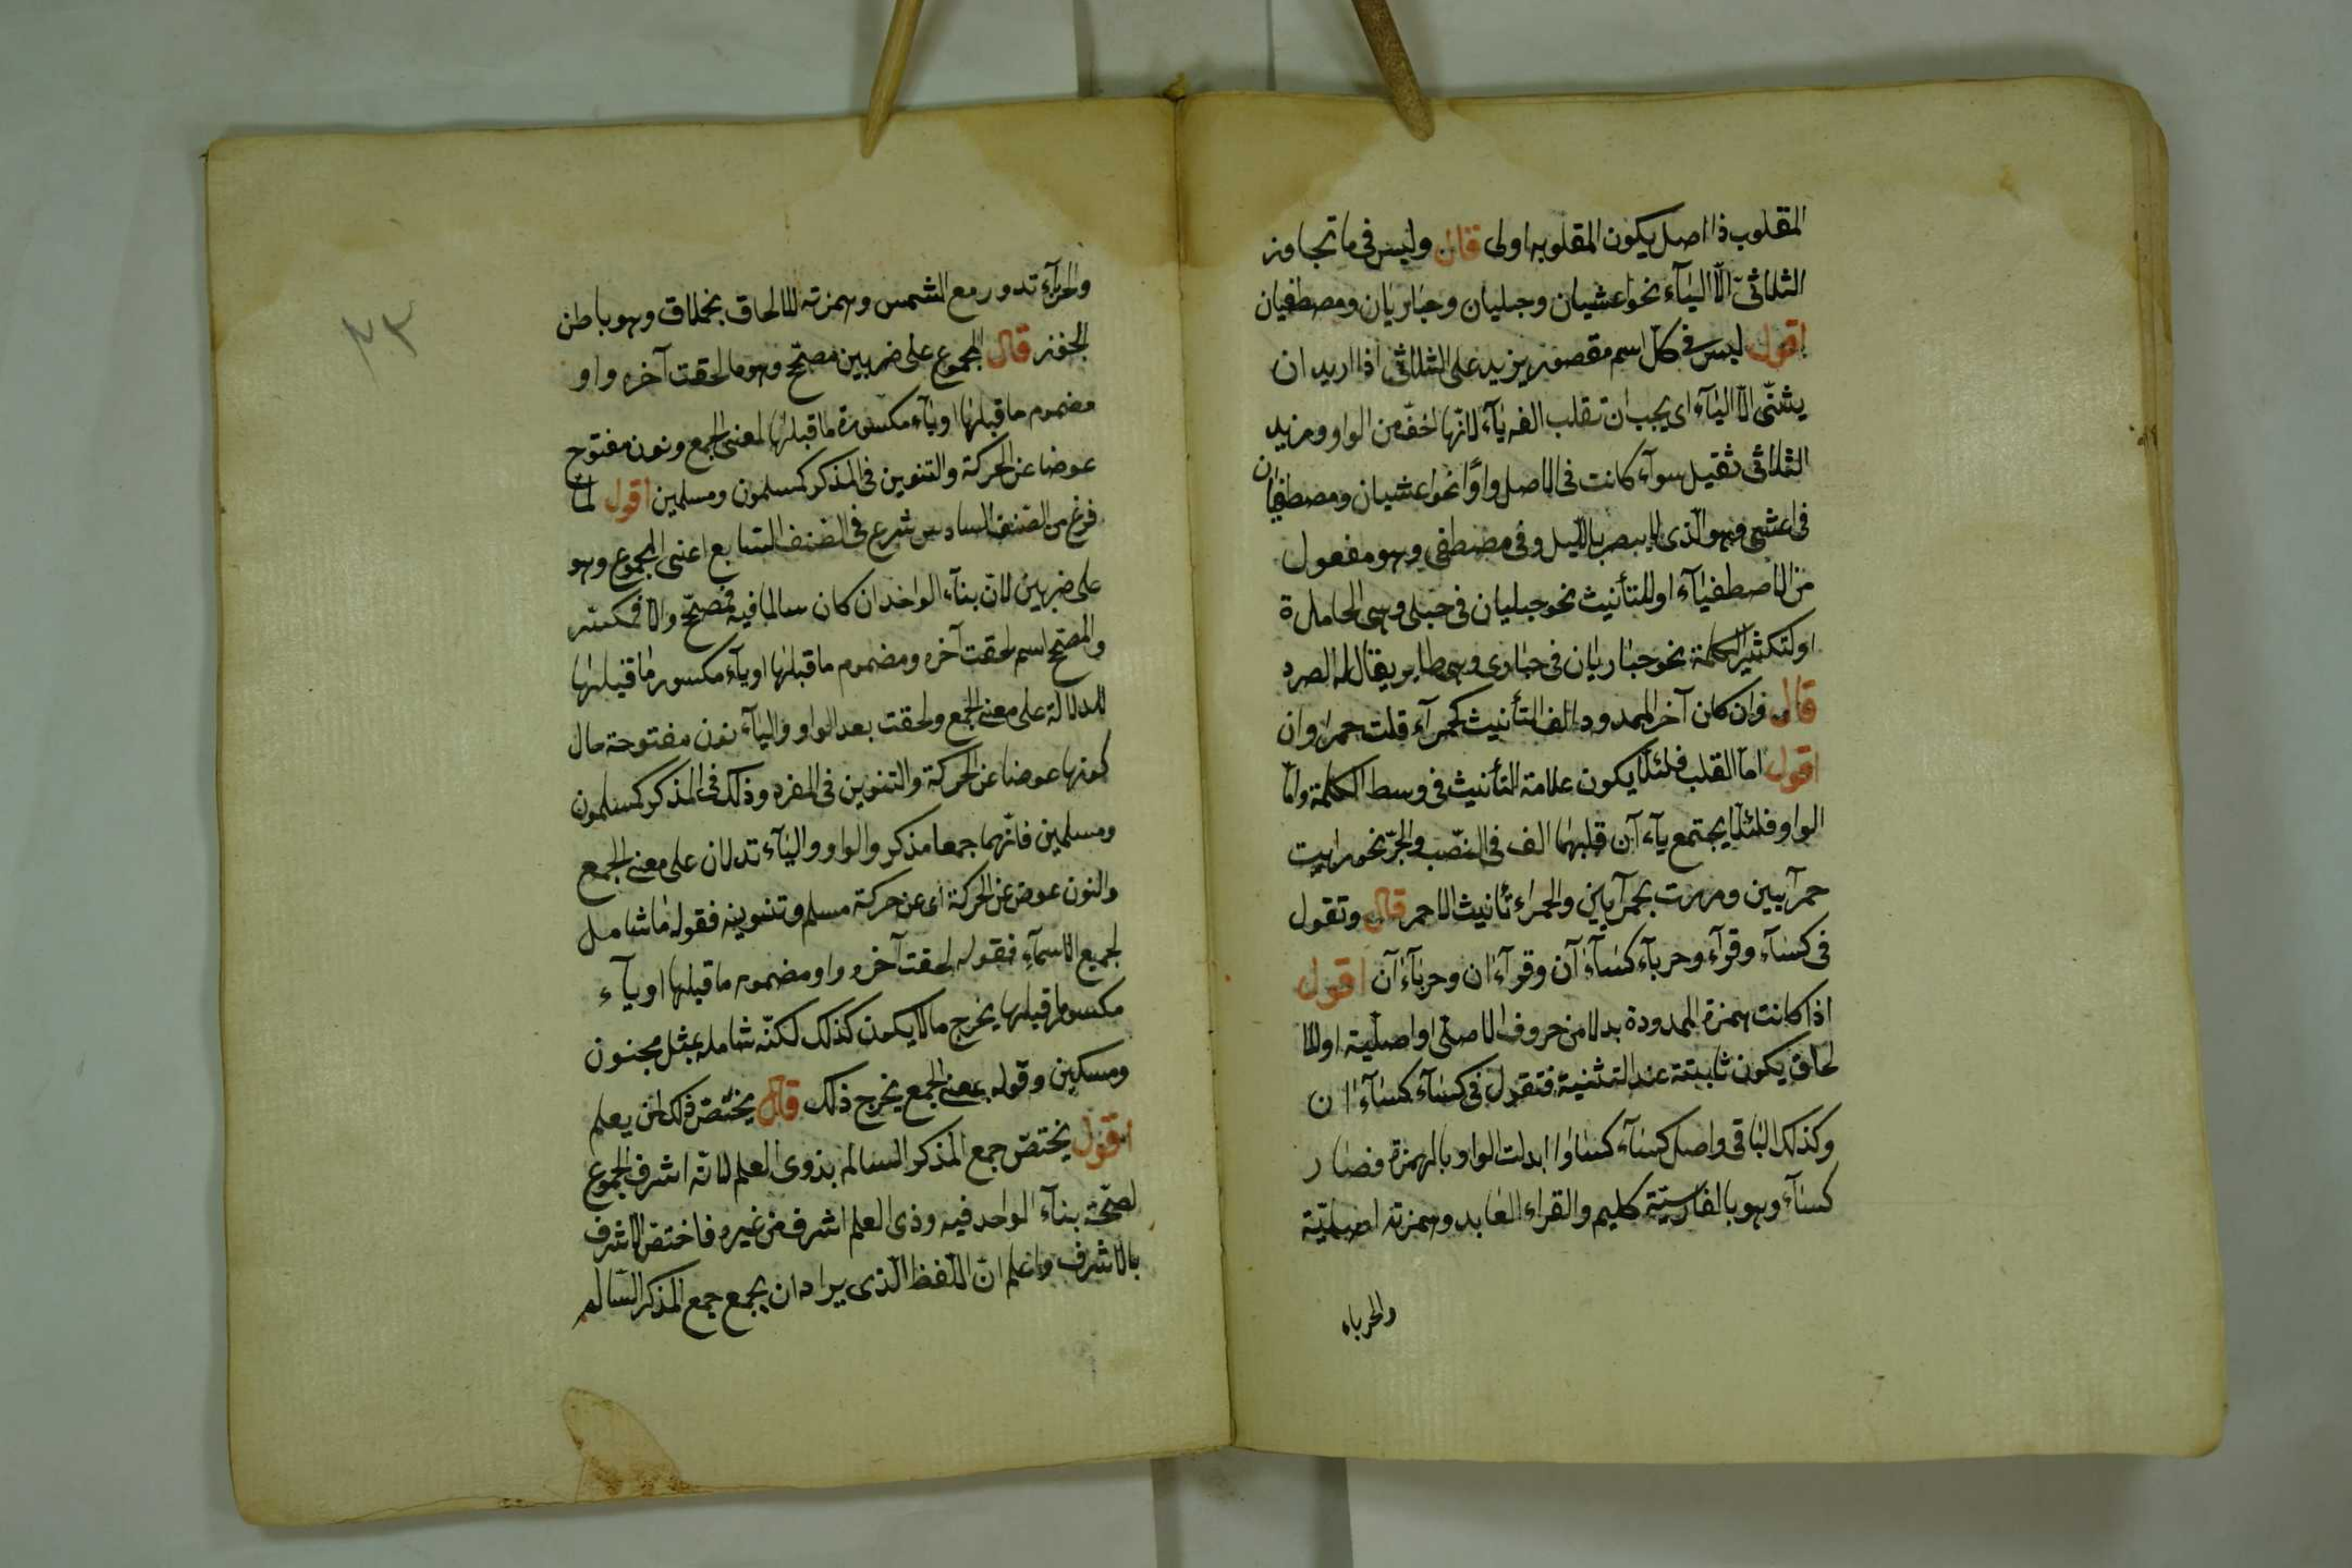 المقلوب ذا اصل يكون المقلوبه اولى قال وليس فى ما تجاوز
الثلاثىّ الّا اليآء نحو اعشيان وحبليان وحباريان ومصطفيان
اقول ليس فى كلّ اسم مقصور يزيد على الثلاثى اذا اريد ان
يثنّى الّا اليآء اى يجب ان تقلب الفه يآء لانّها اخفّ من الواو ومزيد
الثلاثى ثقيل سوآء كانت فى الاصل واوًا نحو اعشيان ومصطفيان
فى اعشى وهو الّذى لا يبصر بالليل وفى مصطفى وهو مفعول
من الاصطفيآء او للتأنيث نحو حبليان فى حبلى وهى الحاملة
او لتكثير الكلمة نحو حباريان فى حبارى وهى طاير يقال له الصرد
قال وان كان آخر الممدود الف التأنيث كحمرآء قلت حمراوان
اقول امّا القلب فلئلّا يكون علامة التأنيث فى وسط الكلمة وامّا
الواو فلئلّا يجتمع يآء آن قلبهما الف فى النصّب والجرّ نحو رايت
حمرآيين ومررت بحمرآيين والحمراء تأنيث الاحمر قال وتقول
فى كسآء وقرآء وحربآء كسآءآن وقرآءان وحربآءآن اقول
اذا كانت همزة الممدودة بدلا من حروف الاصلى او اصليّة او للا
لحاق يكون ثابتة عند التثنية فتقول فى كسآء كسآءان
وكذلك الباقى واصل كسآء كساوا ابدلت الواو بالهمزة فصار
كسآء وهو بالفارسيّة كليم والقراء العابد وهمزته اصليّة
والحرباء
والحربآء تدور مع الشمس وهمزته للالحاق بحملاق وهو باطن
الجفن قال المجموع على ضربين مصحّح وهو ما لحقت آخره واو
مضموم ما قبلها او يآء مكسورة ما قبلها لمعنى الجمع ونون مفتوح
عوضا عن الحركة والتنوين فى المذكر كمسلمون ومسلمين اقول لمّا
فرغ من الصّنف السادس شرع فى الصّنف السّابع اعنى المجموع وهو
على ضربين لانّ بنآء الواحد ان كان سالما فيه فمصحّح والّا فمكسّر
والمصحّح اسم لحقت آخره ومضموم ما قبلها او يآء مكسور ما قبلها
للدلالة على معنى الجمع ولحقت بعد الواو واليآء نون مفتوحة حال
كونها عوضا عن الحركة والتنوين فى المفرد وذلك فى المذكر كمسلمون
ومسلمين فانّهما جمعا مذكر والواو واليآء تدلان على معنى الجمع
والنون عوض عن الحركة اى عن حركة مسلم وتنوينه فقوله ما شامل
لجميع الاسمآء فقوله لحقت آخره واو مضموم ما قبلها او يآء
مكسور ما قبلها يخرج ما لا يكون كذلك لكنّه شامل بمثل مجنون
ومسكين وقوله بمعنى الجمع يخرج ذلك قال يختصّ ذلك لمن يعلم
اقول يختصّ جمع المذكر السالم بذوى العلم لانّه اشرف الجموع
لصحّة بنآء الواحد فيه وذى العلم اشرف من غيره فاختصّ الاشرف
بالاشرف واعلم انّ اللّفظ الّذى يراد ان يجمع جمع المذكر السّالم